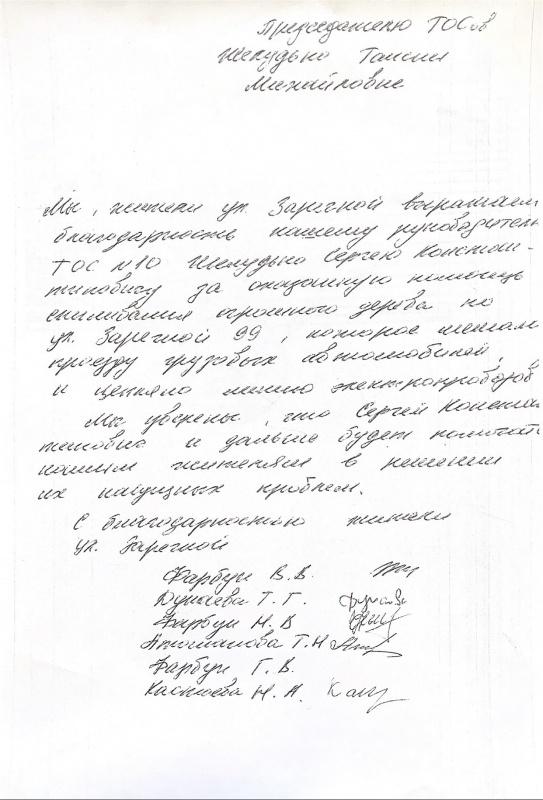 Председателю ТОСов
Желудько Таисии
Михайловне
Мы, жители ул. Заречной выражаем
благодарность нашему руководителю
ТОС №10 Желудько Сергею Констан-
тиновичу за оказанную помощь
спиливания огромного дерева по
ул. Заречной 99, которое мешало
проезду грузовых автомобилей,
и цепляло линию электропроводов
Мы уверены, что Сергей Констан
тинович и дальше будет помогать
нашим жителям в решении
их насущных проблем.
С благодарностью жители
ул. Заречной
Фарбун В. В.
Дунаева Т. Г.
Фарбун Н. В
Т. Н
Фарбун Г. В.
Н. А.